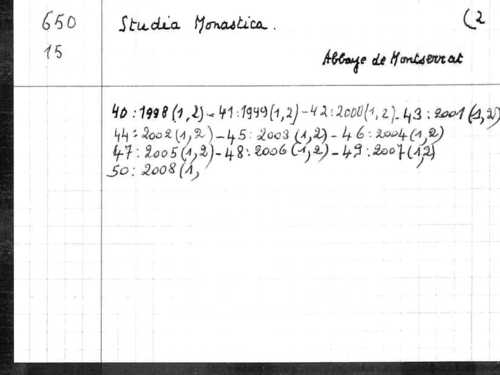 650 Studia Monastica. (2
15 Abbaye de Montserrat
40:1998(1,2)-41:1999(1,2)-42:2000(1,2)-43:2001(1,2)
44:2002(1,2)-45:2003(1,2)-46:2004(1,2)
47:2005(1,2)-48:2006(1,2)-49:2007(1,2)
50:2008(1,